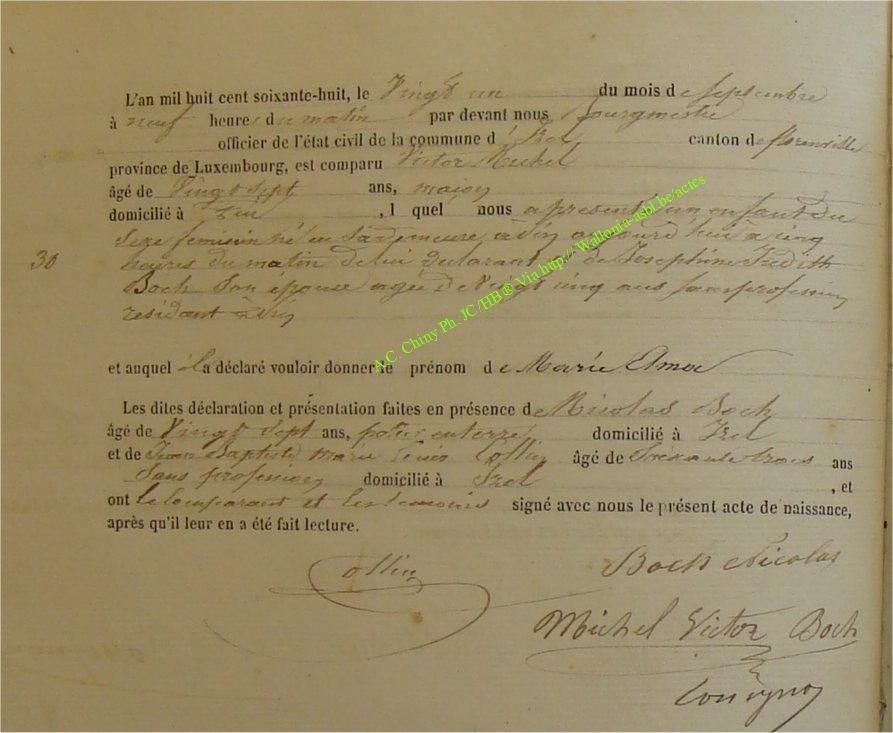 L'an mil huit cent soixante-huit, le Vingt un du mois de Septembre
à neuf heures du matin par devant nous Bourgmestre
officier de l'état civil de la commune d'Izel canton de florenville
province de Luxembourg, est comparu Victor Michel
âgé de Vingt Sept ans, maçon
domicilié à Izel, lequel nous a présenté un enfant du
Sexe feminin né en Sa demeure aujourd'hui à cinq
30 heures du matin de lui declarant & de Josephine
Boch Son épouse agée de Vingt cinq ans Sans profession
résidant à
et auquel il a déclaré vouloir donner le prénom de Marie
Les dites déclaration et présentation faites en présence de Nicolas Boch
âgé de Vingt Sept ans, potier en terre domicilié à Izel
et de Jean Baptiste Marie Louis Collin âgé de Soixante trois ans
Sans profession domicilié à Izel, et
ont le comparant et les temoins signé avec nous le présent acte de naissance,
après qu'il leur en a été fait lecture.
Collin
Boch Nicolas
Michel Victor Boch
A.C. Chiny Ph. JC/HB® Via http://Wallonia-asbl.be/actes